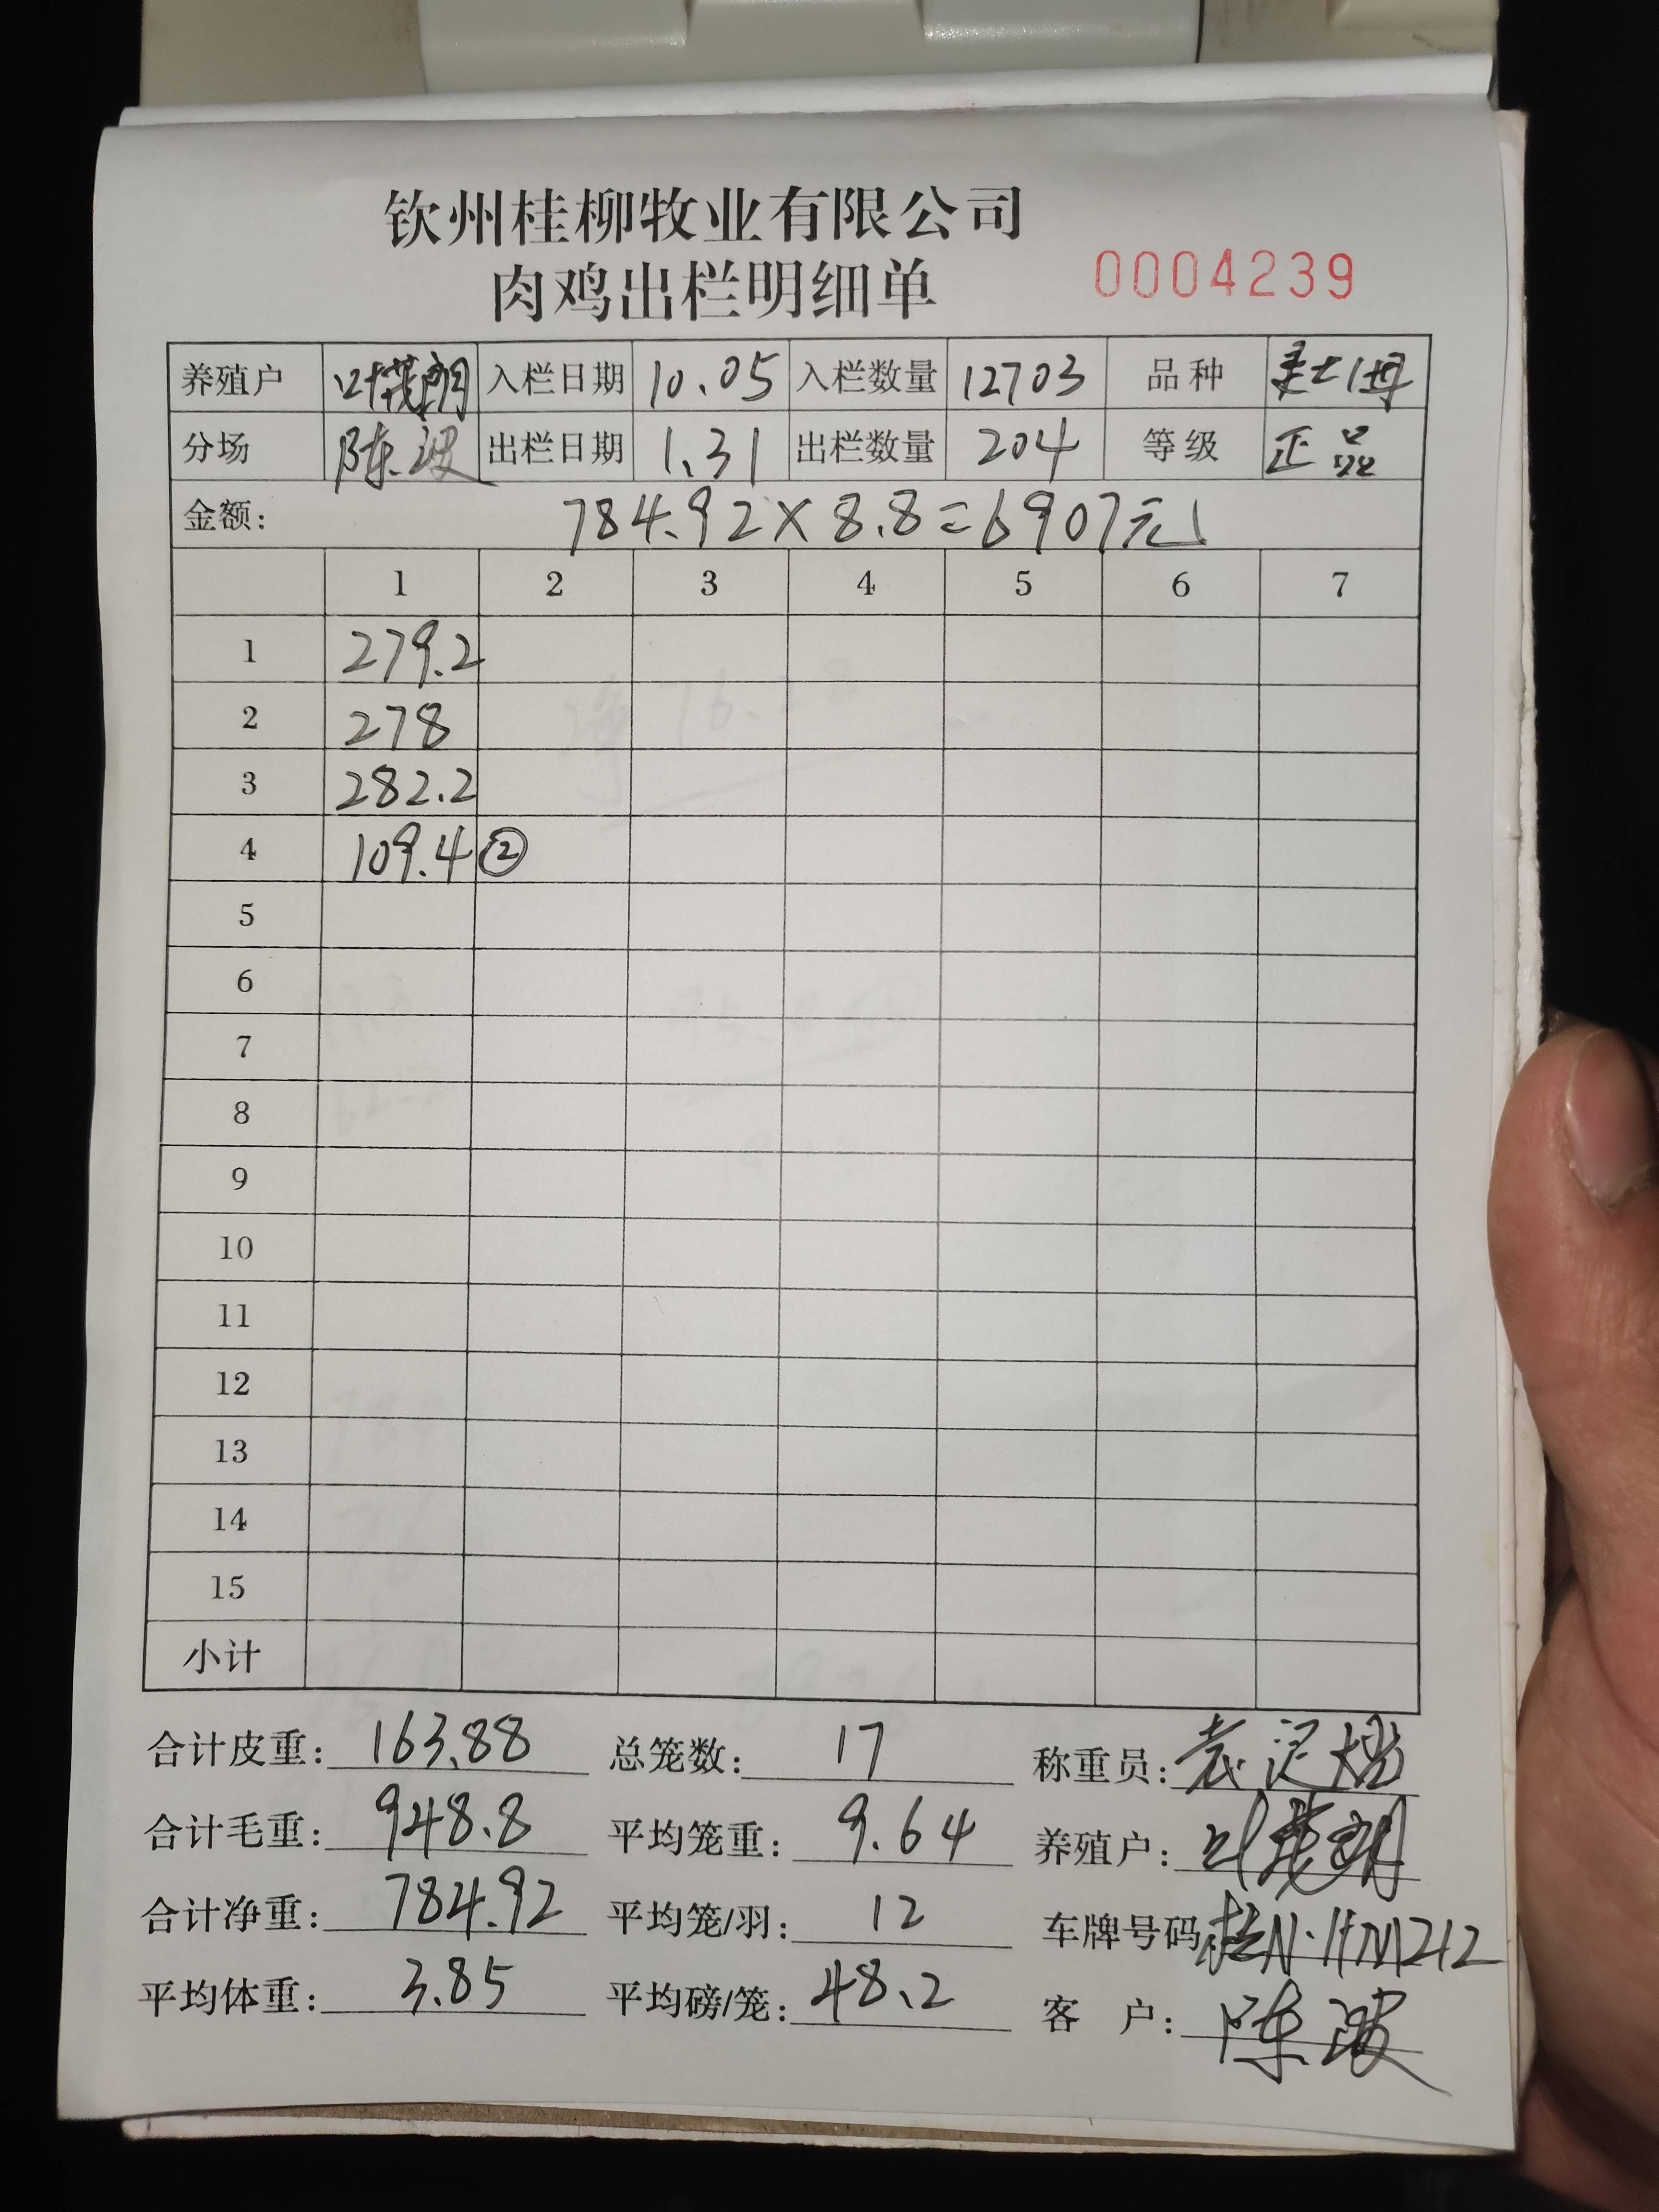 钦州桂柳牧业有限公司
肉鸡出栏明细单 0004239
养殖户 叶茂朗 入栏日期 10.05 入栏数量 12703 品种
分场 陈波 出栏日期 1.31 出栏数量 204 等级 正品
金额: 784.92×8.8=6907元
1 2 3 4 5 6 7
1 279.2
2 278
3 282.2
4 109.4 ②
5
6
7
8
9
10
11
12
13
14
15
小计
合计皮重: 163.88 总笼数: 17 称重员:
合计毛重: 948.8 平均笼重: 9.64 养殖户: 叶茂朗
合计净重: 784.92 平均笼/羽: 12 车牌号码 桂N·HM212
平均体重: 3.85 平均磅/笼: 48.2 客 户: 陈波